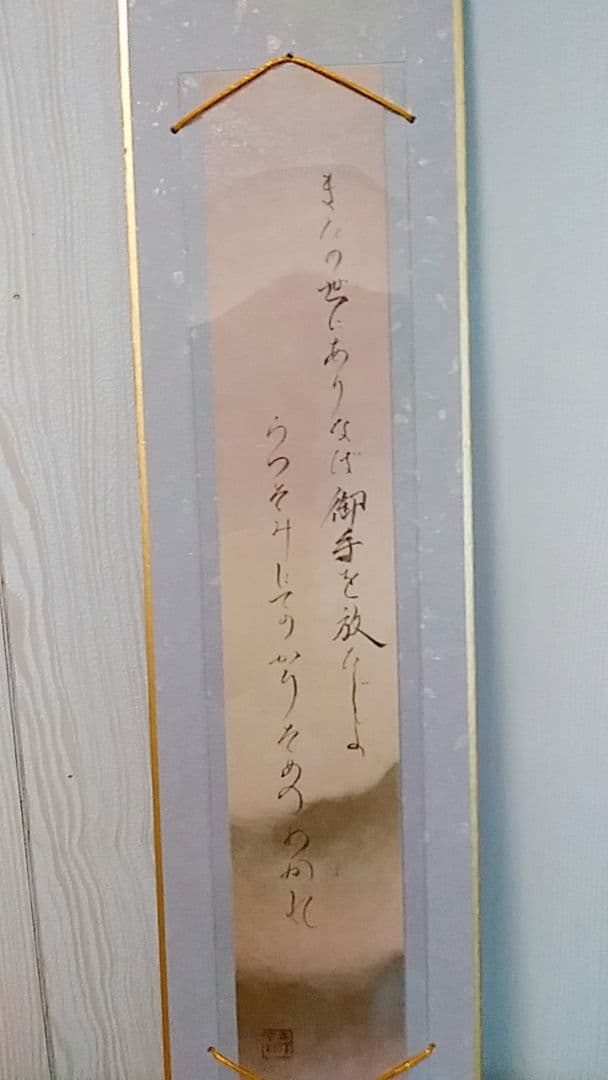 またの世にありなば御手を放たじよ
うつそみにてのかりそめのわかれ